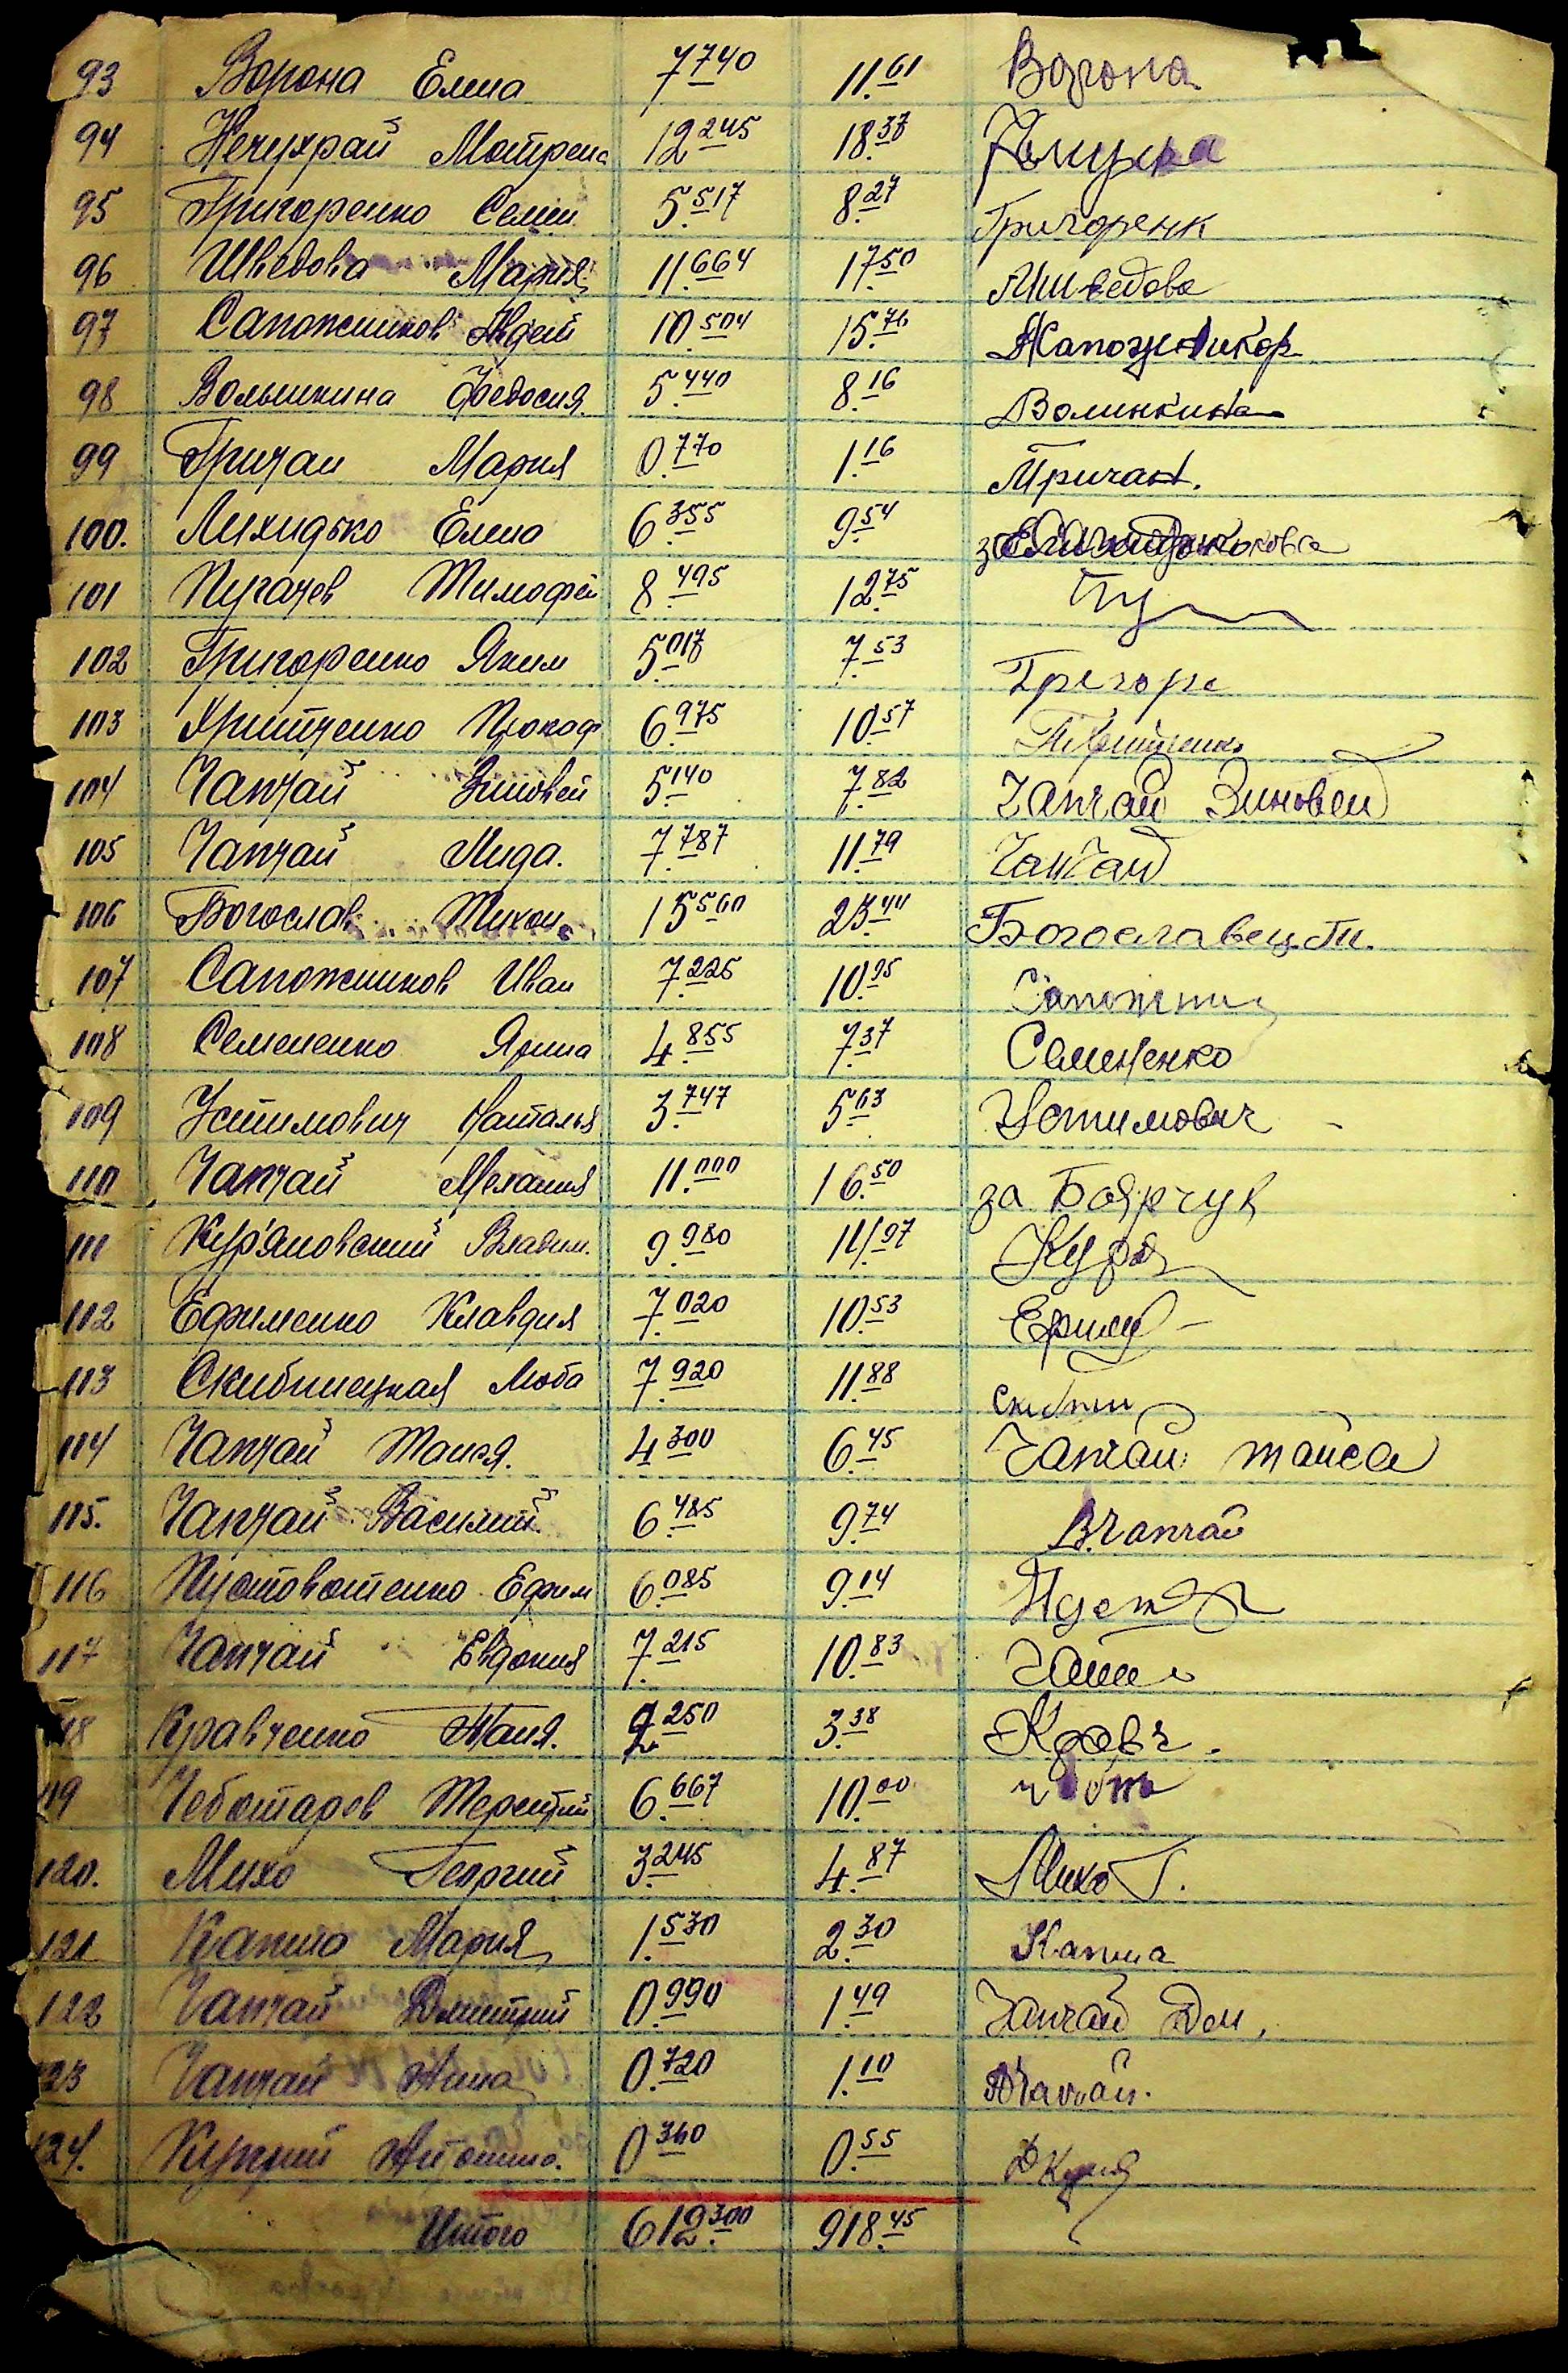 93 Ворона Елена 7.740 11.61 Ворона
94 Нечухрай Матрена 12.245 18.37
95 Григоренко Семен 5.517 8.27 Григоренк
96 Шведова Мария 11.664 17.50 Шведова
97 Сапожников Авдей 10.504 15.76 Сапожников
98 Волынкина Федосия. 5.440 8.16 Волинкина
99 Гричан Мария 0.770 1.16 Гричан.
100. Лихидько Елена 6.355 9.54 за
101 Пугачев Тимофей 8.495 12.75 Пу
102 Григоренко Яким 5.017 7.53 Григоре
103 Хритченко Прокоф 6.975 10.57
104 Чапчай Зиновей 5.140 7.82 Чапчай Зиновей
105 Чапчай Лида. 7.787 11.79 Чапчай
106 Богослав Тихон 15.560 23.44 Богославец Ти.
107 Сапожников Иван 7.225 10.95 Сапожни
108 Семененко Ярина 4.855 7.37 Семененко
109 Устимович Наталья 3.747 5.63 Устимович
110 Чапчай Мелания 11.000 16.50 за Боярчук
111 Кур'яновский Владим. 9.980 14.97 Куря
112 Ефименко Клавдия 7.020 10.53 Ефим
113 Скибицкая Люба 7.920 11.88 Скиб
114 Чапчай Таися. 4.300 6.45 Чапчай таиса
115. Чапчай Василий. 6.485 9.74 В.Чапчай
116 Пустовотенко Ефим 6.085 9.14 Пуст
117 Чапчай Евдокия 7.215 10.83
118 Кравченко Таня. 2.250 3.38 Кравч.
119 Чеботарев Терентий 6.667 10.00
120. Михо Георгий 3.245 4.87 Михо Г.
121 Капша Мария 1.530 2.30 Капша
122 Чапчай Дмитрий 0.990 1.49 Чапчай Дм,
123 Чапчай Анна 0.720 1.10 АЧапчай.
124. Куприй Антонина. 0.360 0.55
Итого 612.300 918.45